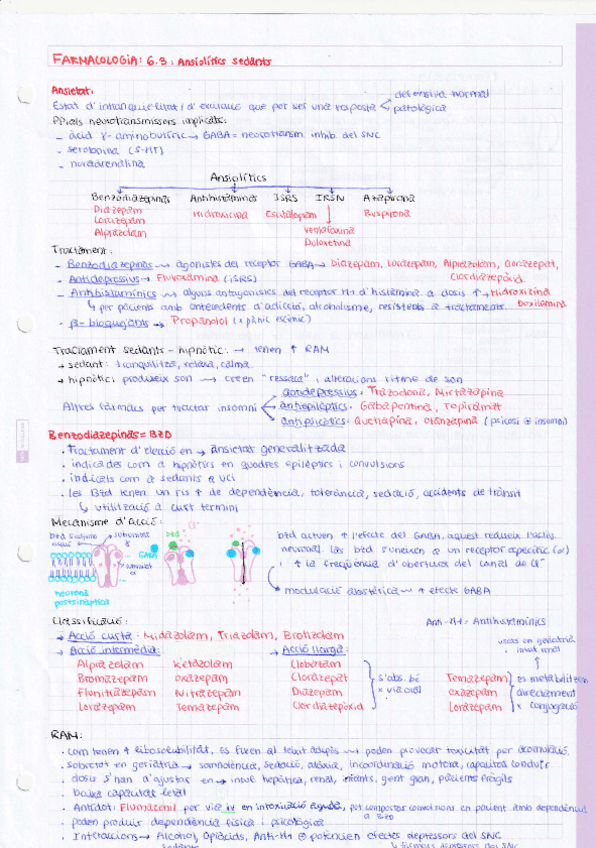 FARMACOLOGIA: 6.3: Ansiolítics sedants
Ansietat:
Estat d'intranquil·litat i d'excitació que pot ser una resposta
defensiva normal
patològica
PPals neurotransmissors implicats:
- àcid γ-aminobutíric → GABA = neurotransm. inhib. del SNC
- serotonina (5-HT)
- noradrenalina
Ansiolítics
Benzodiazepinas Antihistamínics ISRS IRSN Azapirona
Diazepam Hidroxicina Escitalopam Buspirona
Lorazepam Venlafaxina
Alprazolam Duloxetina
Tractament:
- Benzodiazepinas → agonistes del receptor GABA → Diazepam, Lorazepam, Alprazolam, Clorazepat,
Clordiazepòxid
- Antidepressius → Fluvoxamina (ISRS)
- Antihistamínics → alguns antagonistes del receptor H1 d'histamina a dosis ↑ → Hidroxicina
doxilamina
↳ per pacients amb antecedents d'adicció, alcoholisme, resistents a tractaments
- β-bloquejants → Propanolol (x pànic escènic)
Tractament sedants-hipnòtic: → tenen ↑ RAM
→ sedant: tranquilitza, relaxa, calma.
→ hipnòtic: produeix son → creen "ressaca" i alteracions ritme de son
Altres fàrmacs per tractar insomni
antidepressius: Trazodona, Mirtazapina
antiepilèptics: Gabapentina, Topiramat
antipsicòtics: Quetiapina, Olanzapina (psicosi + insomni)
Benzodiazepinas = BZD
· Tractament d'elecció en → ansietat generalitzada
· indicades com a hipnòtics en quadres epilèptics i convulsions
· indicats com a sedants a UCI
· les BZD tenen un risc ↑ de dependència, tolerància, sedació, accidents de trànsit
↳ utilització a curt termini
Mecanisme d'acció:
btd s'adjunta aquí
subunitat γ
btd
Cl-
GABA
subunitat α
neurona
postsinàptica
btd activen ↑ l'efecte del GABA, aquest redueix l'activ.
neuronal. Las btd s'uneixen a un receptor específic (α)
i ↑ la freqüència d'obertura del canal de Cl-
modulació alostèrica → ↑ efecte GABA
Classificació:
Anti-H1 = Antihistamínics
→ Acció curta: Midazolam, Triazolam, Brotizolam
usats en geriatria
i insuf. renal
→ Acció intermèdia: → Acció llarga:
Alprazolam Ketazolam Clobazam
Bromazepam oxazepam Clorazepat s'abs. bé Temazepam es metabolitzen
Flunitrazepam Nitrazepam Diazepam x via oral oxazepam directament
Lorazepam Temazepam Clordiazepòxid Lorazepam x conjugació
RAM:
· Com tenen ↑ liposolubilitat, es fixen al teixit adipós → poden provocar toxicitat per acumulació.
· sobretot en geriatria → somnolència, sedació, atàxia, incoordinació motora, capacitat conduir
· dosis s'han d'ajustar en → insuf. hepàtica, renal, infants, gent gran, pacients fràgils
· baixa capacitat letal
· Antídot: Flumazenil per via iv en intoxicació aguda, pot comportar convulsions en pacient amb dependència
a BZD
· poden produir dependència física i psicològica
· Interaccions → Alcohol, Opiàcids, Anti-H1 ⊕ potencien efectes depressors del SNC